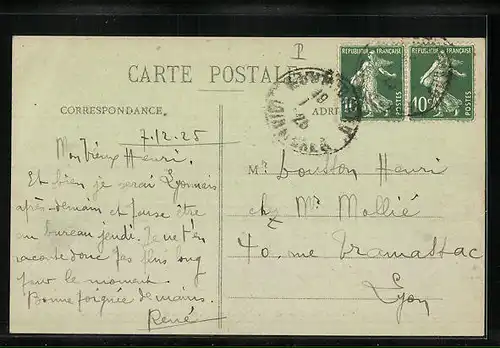 P
CARTE POSTALE
REPUBLIQUE FRANÇAISE
POSTES
10c
REPUBLIQUE FRANÇAISE
POSTES
10c
CORRESPONDANCE
ADR
7.12.25
Mon Vieux Henri.
Et bien je serai Lyonnais
après-demain et pense être
au bureau jeudi. Je ne t'en
raconte donc pas plus long
pour le moment.
Bonne poignée de mains.
René
Mr Housson Henri
chez Mr Mollié
40. rue Tramassac
Lyon